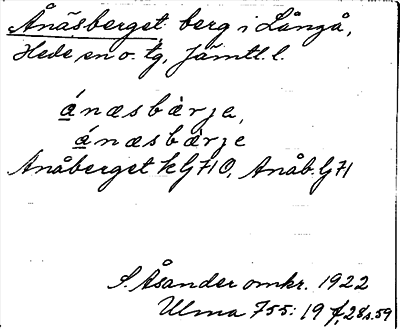 Ånäsberget berg i Långå,
Hede sn o. tg, Jämtl. l.
ánæsbàrja,
ánæsbàrje
Anåberget kG 71 O, Anåb. G 71
S. Åsander omkr. 1922
Ulma 755: 19 f, 28 s. 59